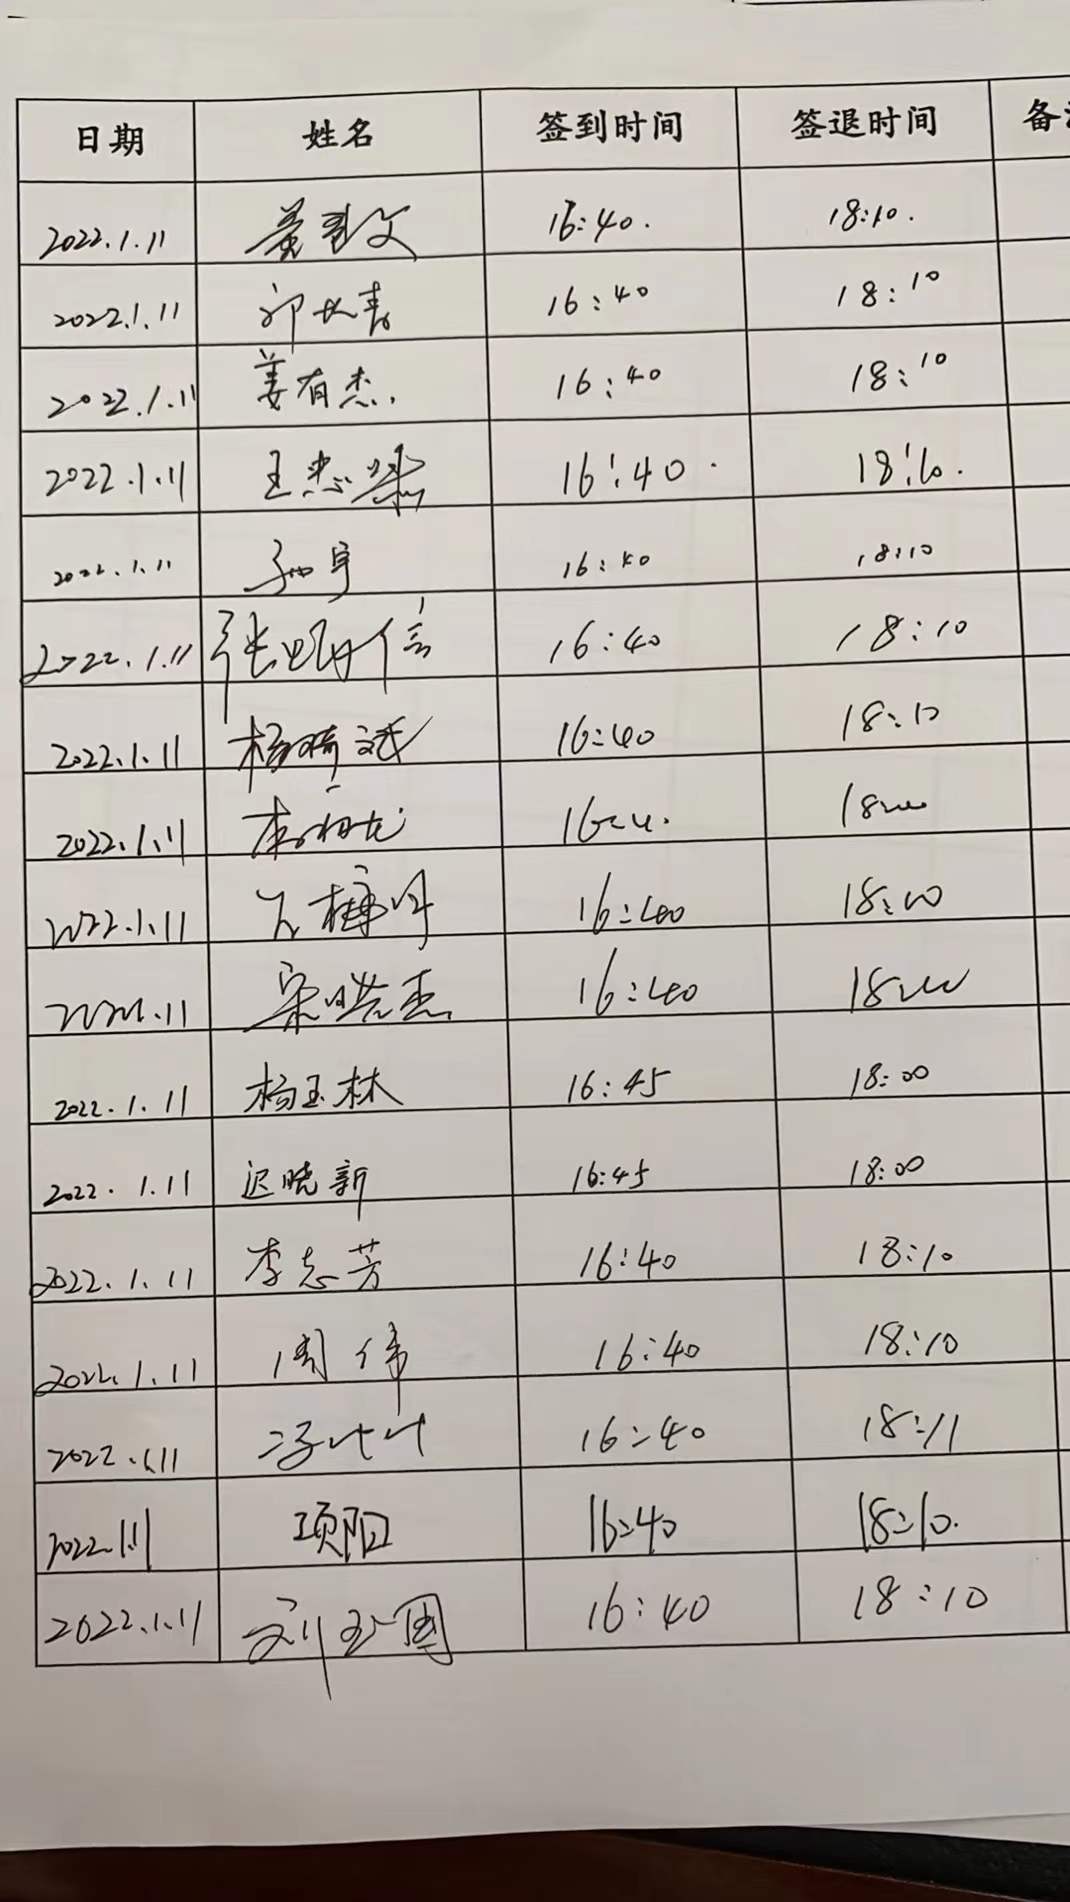 日期 姓名 签到时间 签退时间 备
2022.1.11 16:40. 18:10.
2022.1.11 16:40 18:10
2022.1.11 姜有杰. 16:40 18:10
2022.1.11 王志 16:40. 18:10.
2022.1.11 孙宇 16:40 18:10
2022.1.11 张 信 16:40 18:10
2022.1.11 杨 斌 16:40 18:10
2022.1.11 李 龙
2022.1.11 16:40 18:10
16:40
2022.1.11 杨玉林 16:45 18:00
2022.1.11 迟晓新 16:45 18:00
2022.1.11 李志芳 16:40 18:10
2022.1.11 周伟 16:40 18:10
2022.1.11 冯叶叶 16:40 18:11
2022.1.11 项阳 16:40 18:10.
2022.1.11 刘玉国 16:40 18:10